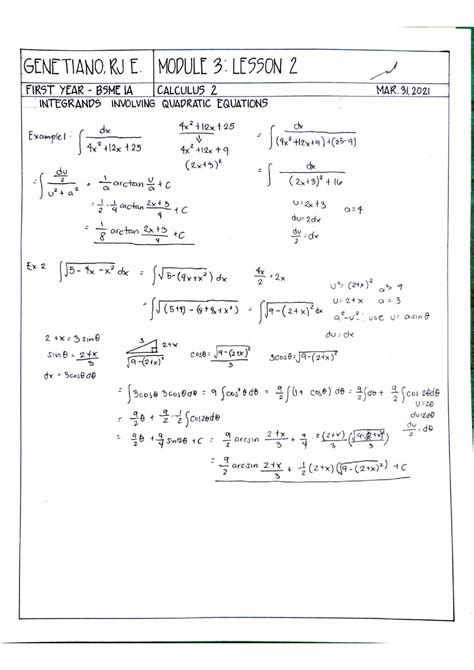 GENETIANO, RJ E. MODULE 3: LESSON 2
FIRST YEAR - BSME 1A CALCULUS 2 MAR. 31, 2021
INTEGRANDS INVOLVING QUADRATIC EQUATIONS
Example 1: ∫ dx / (4x² + 12x + 25)
4x² + 12x + 25
↓
4x² + 12x + 9
(2x+3)²
= ∫ dx / ((4x² + 12x + 9) + (25-9))
= ∫ dx / ((2x+3)² + 16)
u = 2x + 3 a = 4
du = 2dx
du/2 = dx
= ∫ (du/2) / (u² + a²) = 1/a arctan u/a + C
= 1/2 · 1/4 arctan (2x+3)/4 + C
= 1/8 arctan (2x+3)/4 + C
Ex. 2 ∫ √(5 - 4x - x²) dx = ∫ √(5 - (4x + x²)) dx 4x/2 = 2x
= ∫ √((5+4) - (4 + 8x + x²)) = ∫ √(9 - (2+x)²) dx
u² = (2+x)² a² = 9
u = 2+x a = 3
a² - u², use u = a sin θ
du = dx
2 + x = 3 sin θ
sin θ = (2+x)/3
dx = 3 cos θ dθ
3 2+x
√(9 - (2+x)²)
cos θ = √(9 - (2+x)²) / 3 3 cos θ = √(9 - (2+x)²)
= ∫ 3 cos θ 3 cos θ dθ = 9 ∫ cos² θ dθ = 9/2 ∫ (1 + cos θ) dθ = 9/2 ∫ dθ + 9/2 ∫ cos 2θ dθ
u = 2θ
du = 2dθ
du/2 = dθ
= 9/2 θ + 9/2 · 1/2 ∫ cos 2θ dθ
= 9/2 θ + 9/4 sin 2θ + C = 9/2 arcsin (2+x)/3 + 9/4 · 2 (2+x)/3 (√(9 - (2+x)²)/3)
= 9/2 arcsin (2+x)/3 + 1/2 (2+x)(√(9 - (2+x)²) + C